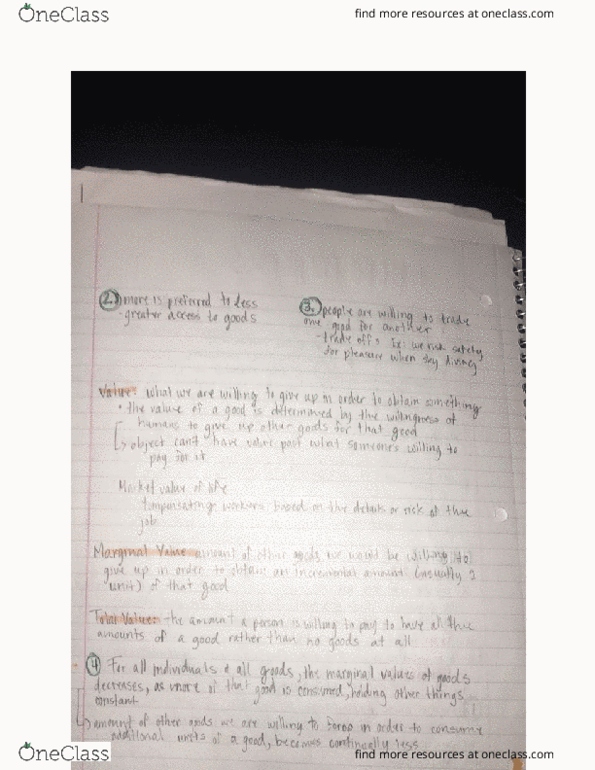 OneClass
find more resources at oneclass.com
2. more is preferred to less
-greater access to goods
3. people are willing to trade
one good for another
-trade offs Ex: we risk safety
for pleasure when sky diving
Value: what we are willing to give up in order to obtain something
• the value of a good is determined by the willingness of
humans to give up other goods for that good
↳ object can't have value past what someone's willing to
pay for it
Market value of life
compensating workers based on the details or risk of the
job
Marginal Value: amount of other goods we would be willing to
give up in order to obtain an incremental amount (usually 1
unit) of that good
Total Value: the amount a person is willing to pay to have all the
amounts of a good rather than no goods at all
4 For all individuals & all goods, the marginal values of goods
decreases, as more of that good is consumed, holding other things
constant
↳ amount of other goods we are willing to in order to consume
additional units of a good, becomes continually less
OneClass
find more resources at oneclass.com